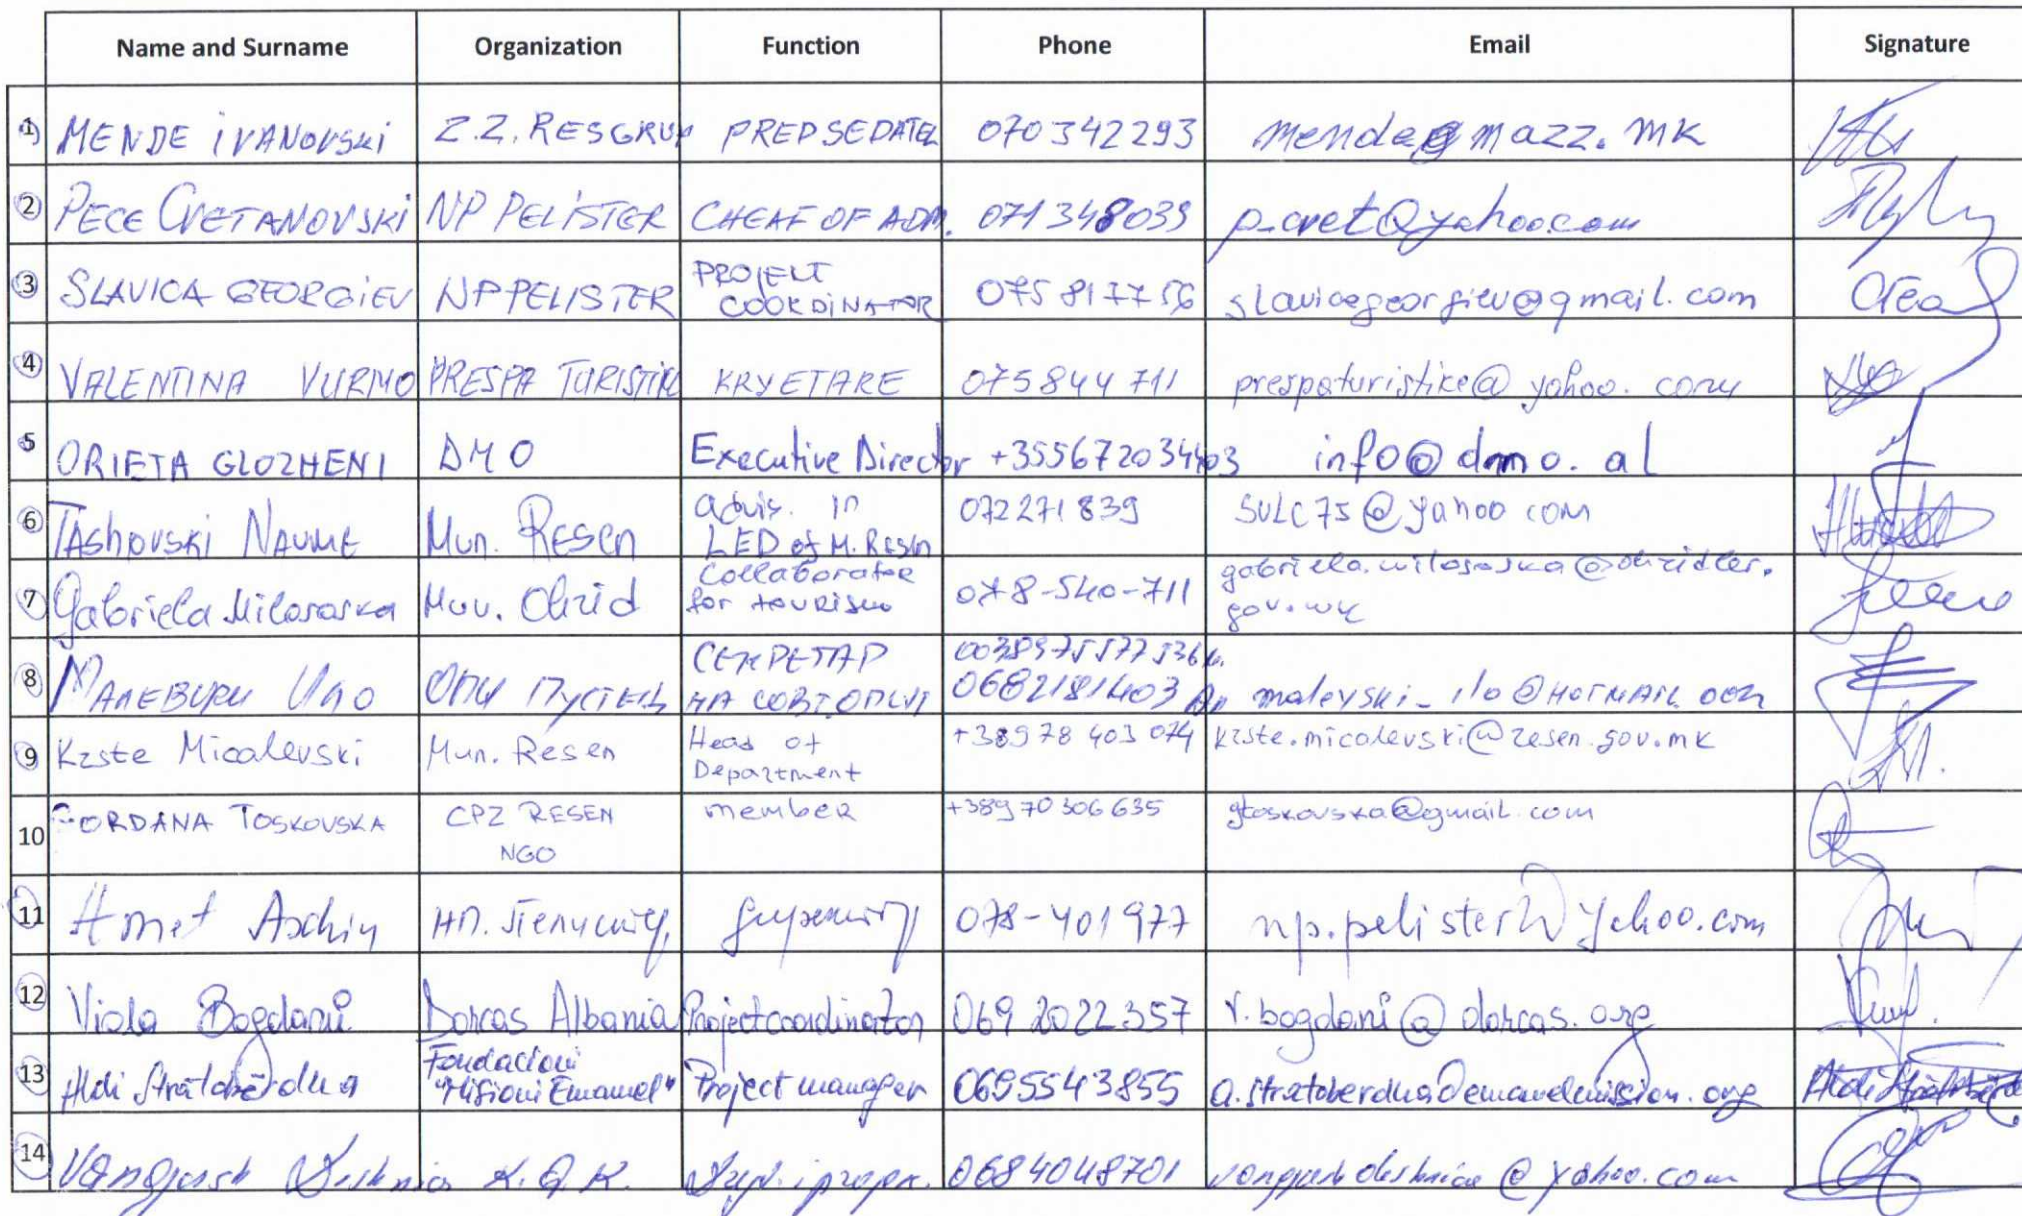 Name and Surname Organization Function Phone Email Signature
1 MENDE IVANOVSKI Z.Z. RESGRUP PREPSEDATEL 070342293 mende@mazz.mk
2 PECE CVETANOVSKI NP PELISTER CHEAF OF ADM. 071348039 p_cvet@yahoo.com
3 SLAVICA GEORGIEV NP PELISTER PROJECT
COORDINATOR 075817756 slavicageorgiev@gmail.com
4 VALENTINA VURMO PRESPA TURISTIKE KRYETARE 075844711 prespaturistike@yahoo.com
5 ORIETA GLOZHENI DMO Executive Director +355672034403 info@dmo.al
6 TAShOVSKI NAUME Mun. Resen advis. in
LED of M. Resen 072271839 SULC75@yahoo com
7 Gabriela Milososka Mun. Ohrid Collaborator
for tourism 078-540-711 gabriela.milososka@ohridler.
gov.mk
8 Малевски Ило ОПШ ПУСТЕЦ СЕКРЕТАР
НА 0682181403
9 Krste Micalevski Mun. Resen Head of
Department +389 78 403 074 krste.micalevski@resen.gov.mk
10 GORDANA TOSKOVSKA CPZ RESEN
NGO member +389 70 306 635 gtoskovska@gmail.com
11 НП. Пелистер 078-401977 np.pelister@yahoo.com
12 Viola Bogdani Dorcas Albania Project coordinator 069 2022357 v.bogdani@dorcas.org
13 Aldi Stratobërdha Fondacioni
"Misioni Emanuel" Project manager 0695543855 a.stratoberdha@emanuelmission.org Aldi Stratobërdha
14 0684048701